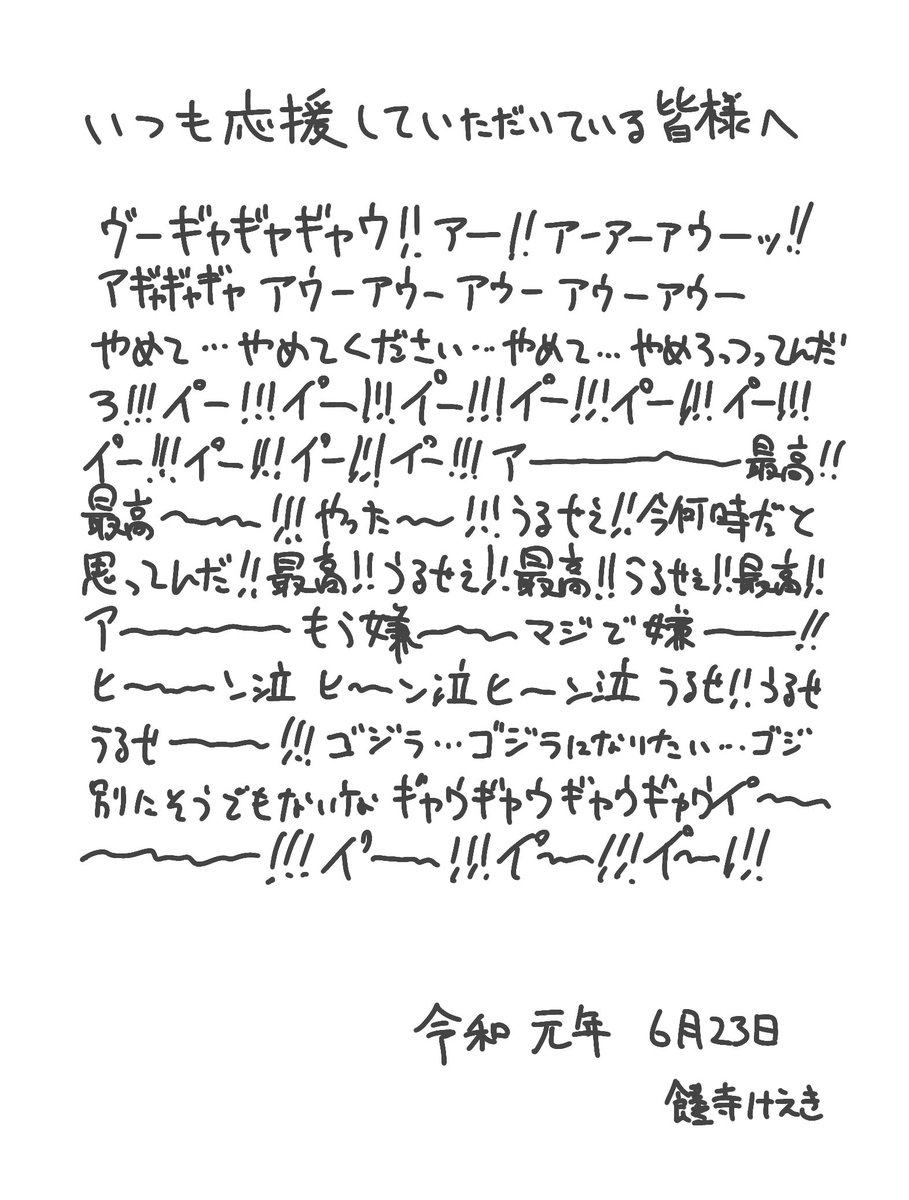 いつも応援していただいている皆様へ
ヴーギャギャギャウ!!アー!!アーアーアウーッ!!
アギャギャギャ アウーアウー アウー アウーアウー
やめて…やめてください…やめて…やめろっつってんだ
ろ!!!イ゚ー!!!イ゚ー!!!イ゚ー!!!イ゚ー!!!イ゚ー!!!イ゚ー!!!
イ゚ー!!!イ゚ー!!!イ゚ー!!!イ゚ー!!!ア――〜―最高!!
最高〜〜!!!やった〜!!!うるせぇ!!今何時だと
思ってんだ!!最高!!うるせぇ!!最高!!うるせぇ!!最高!!
ア―〜〜〜もう嫌〜〜マジで嫌〜―!!
ヒ〜〜ン泣 ヒ〜ン泣ヒ〜ン泣 うるせ!!うるせ
うるせ〜―!!!ゴジラ…ゴジラになりたい…ゴジ
別にそうでもないな ギャウギャウギャウギャウイ゚〜〜
〜〜〜〜!!!イ゚〜〜!!!イ゚〜!!!イ゚〜!!!
令和 元年 6月23日
寺けえき